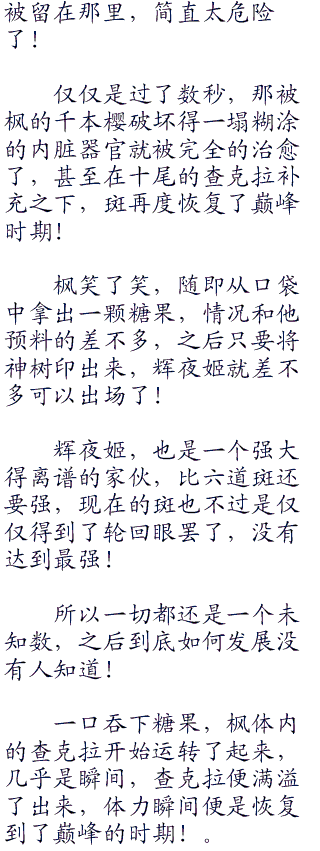 被留在那里，简直太危险
了！
仅仅是过了数秒，那被
枫的千本樱破坏得一塌糊涂
的内脏器官就被完全的治愈
了，甚至在十尾的查克拉补
充之下，斑再度恢复了巅峰
时期！
枫笑了笑，随即从口袋
中拿出一颗糖果，情况和他
预料的差不多，之后只要将
神树印出来，辉夜姬就差不
多可以出场了！
辉夜姬，也是一个强大
得离谱的家伙，比六道斑还
要强，现在的斑也不过是仅
仅得到了轮回眼罢了，没有
达到最强！
所以一切都还是一个未
知数，之后到底如何发展没
有人知道！
一口吞下糖果，枫体内
的查克拉开始运转了起来，
几乎是瞬间，查克拉便满溢
了出来，体力瞬间便是恢复
到了巅峰的时期！。